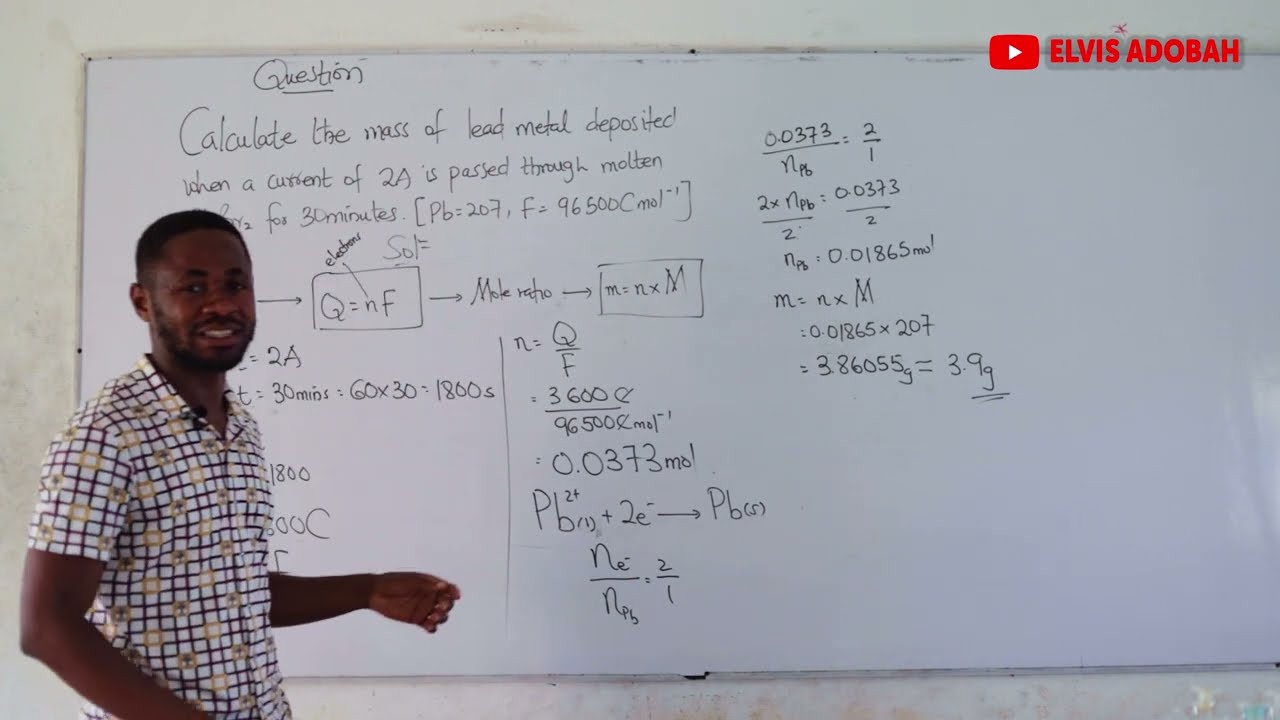 ELVIS ADOBAH
Question
Calculate the mass of lead metal deposited
when a current of 2A is passed through molten
for 30minutes. [Pb=207, F= 96500Cmol⁻¹]
Sol=
electrons
→ Q=nF → Mole ratio → m=n×M
= 2A
t = 30mins = 60×30=1800s
1800
00C
n= Q/F
= 3600C/96500Cmol⁻¹
= 0.0373mol
Pb²⁺(l) + 2e⁻ → Pb(s)
ne⁻/nPb = 2/1
0.0373/nPb = 2/1
2×nPb/2 = 0.0373/2
nPb = 0.01865mol
m= n×M
= 0.01865×207
= 3.86055g ≈ 3.9g